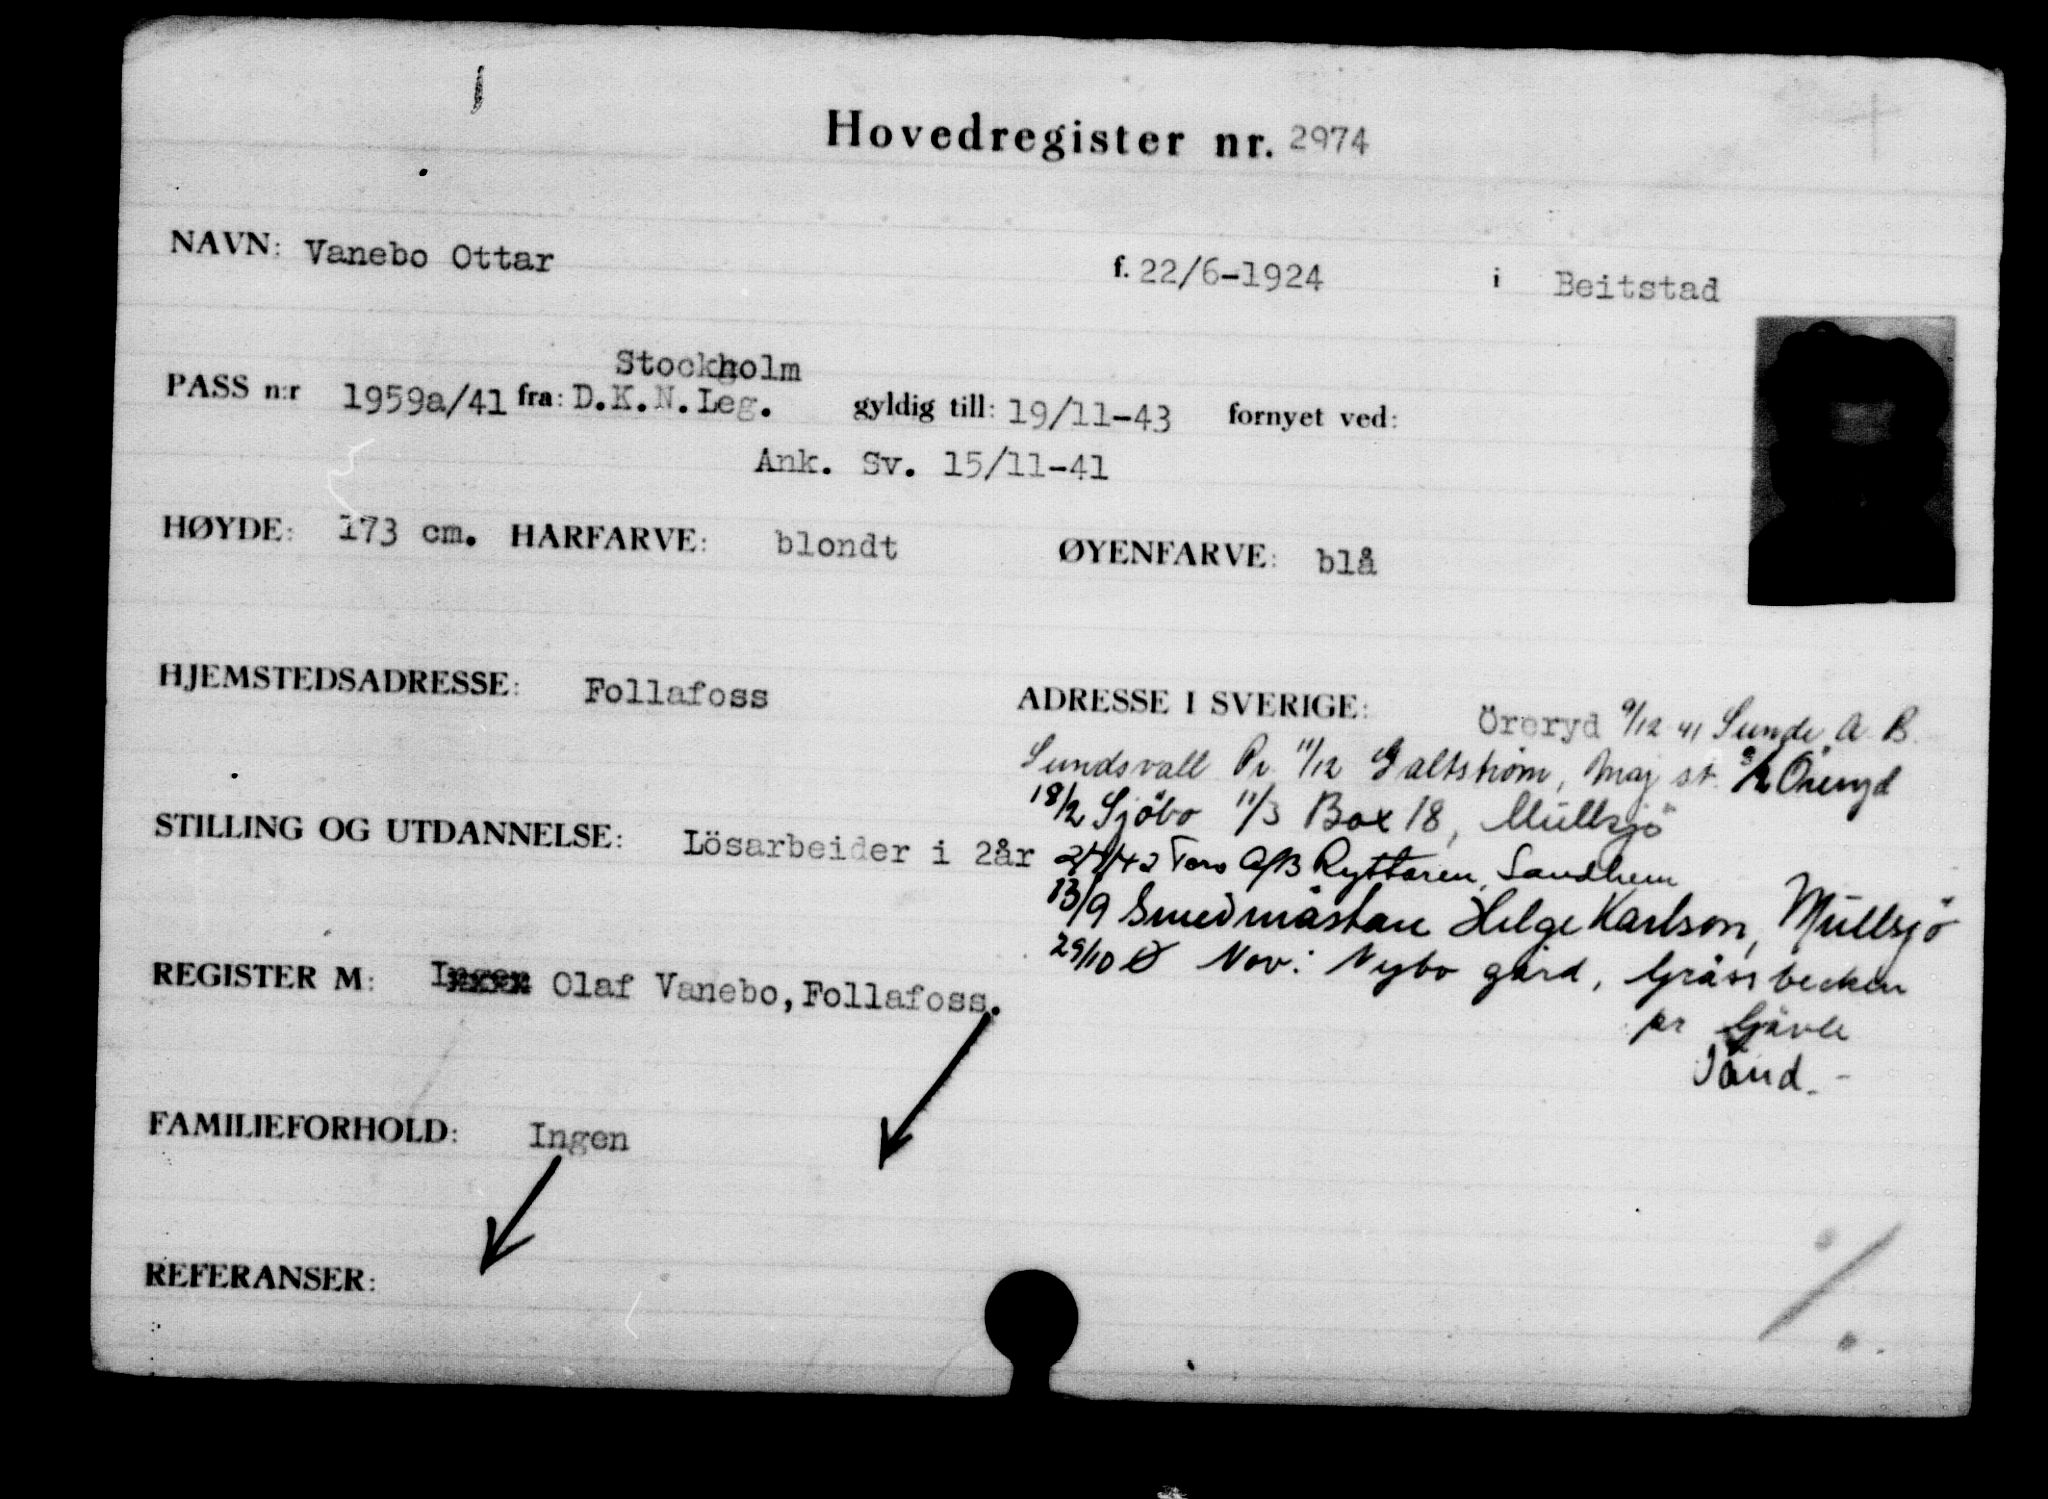 Hovedregister nr. 2974
NAVN: Vanebo Ottar f. 22/6-1924 i Beitstad
Stockholm
PASS n:r 1959a/41 fra: D.K.N.Leg. gyldig till: 19/11-43 fornyet ved:
Ank. Sv. 15/11-41
HØYDE: 173 cm. HARFARVE: blondt ØYENFARVE: blå
HJEMSTEDSADRESSE: Follafoss
ADRESSE I SVERIGE: Öreryd 9/12 41 Sunds A. B.
Sundsvall 11/12 Galtström, Maj st. Öreryd
18/2 Sjöbo 11/3 Box 18, Mullsjö
STILLING OG UTDANNELSE: Lösarbeider i 2år
A/B Ryttaren, Sandhem
13/9 Smedmästare Helge Karlson, Mullsjö
29/10 Nov: Nybo gård, Gräsbecken
REGISTER M: Olaf Vanebo, Follafoss.
pr Gävle
FAMILIEFORHOLD: Ingen
REFERANSER: